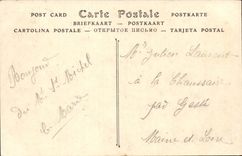 POST CARD Carte Postale POSTKARTE
BRIEFKAART — POSTKAART
CARTOLINA POSTALE — ОТКРЫТОЕ ПИСЬМО — TARJETA POSTAL
Bonjour
du Mt St Michel
Mr Julien Laurent
à la Chaussaire
par Gesté
Maine et Loire